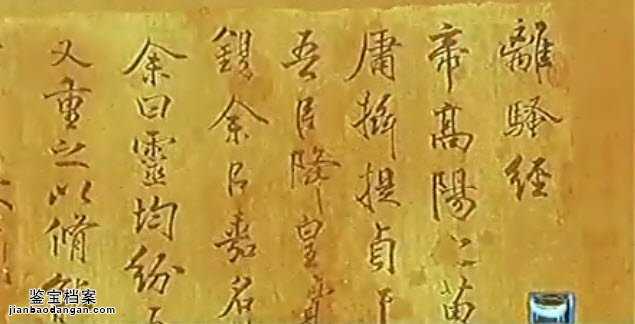 離騷經
帝高陽之苗
庸攝提貞于
吾㠯降皇覽
錫余㠯嘉名
余曰靈均紛吾
又重之以脩能
鉴宝档案
jianbaodangan.com